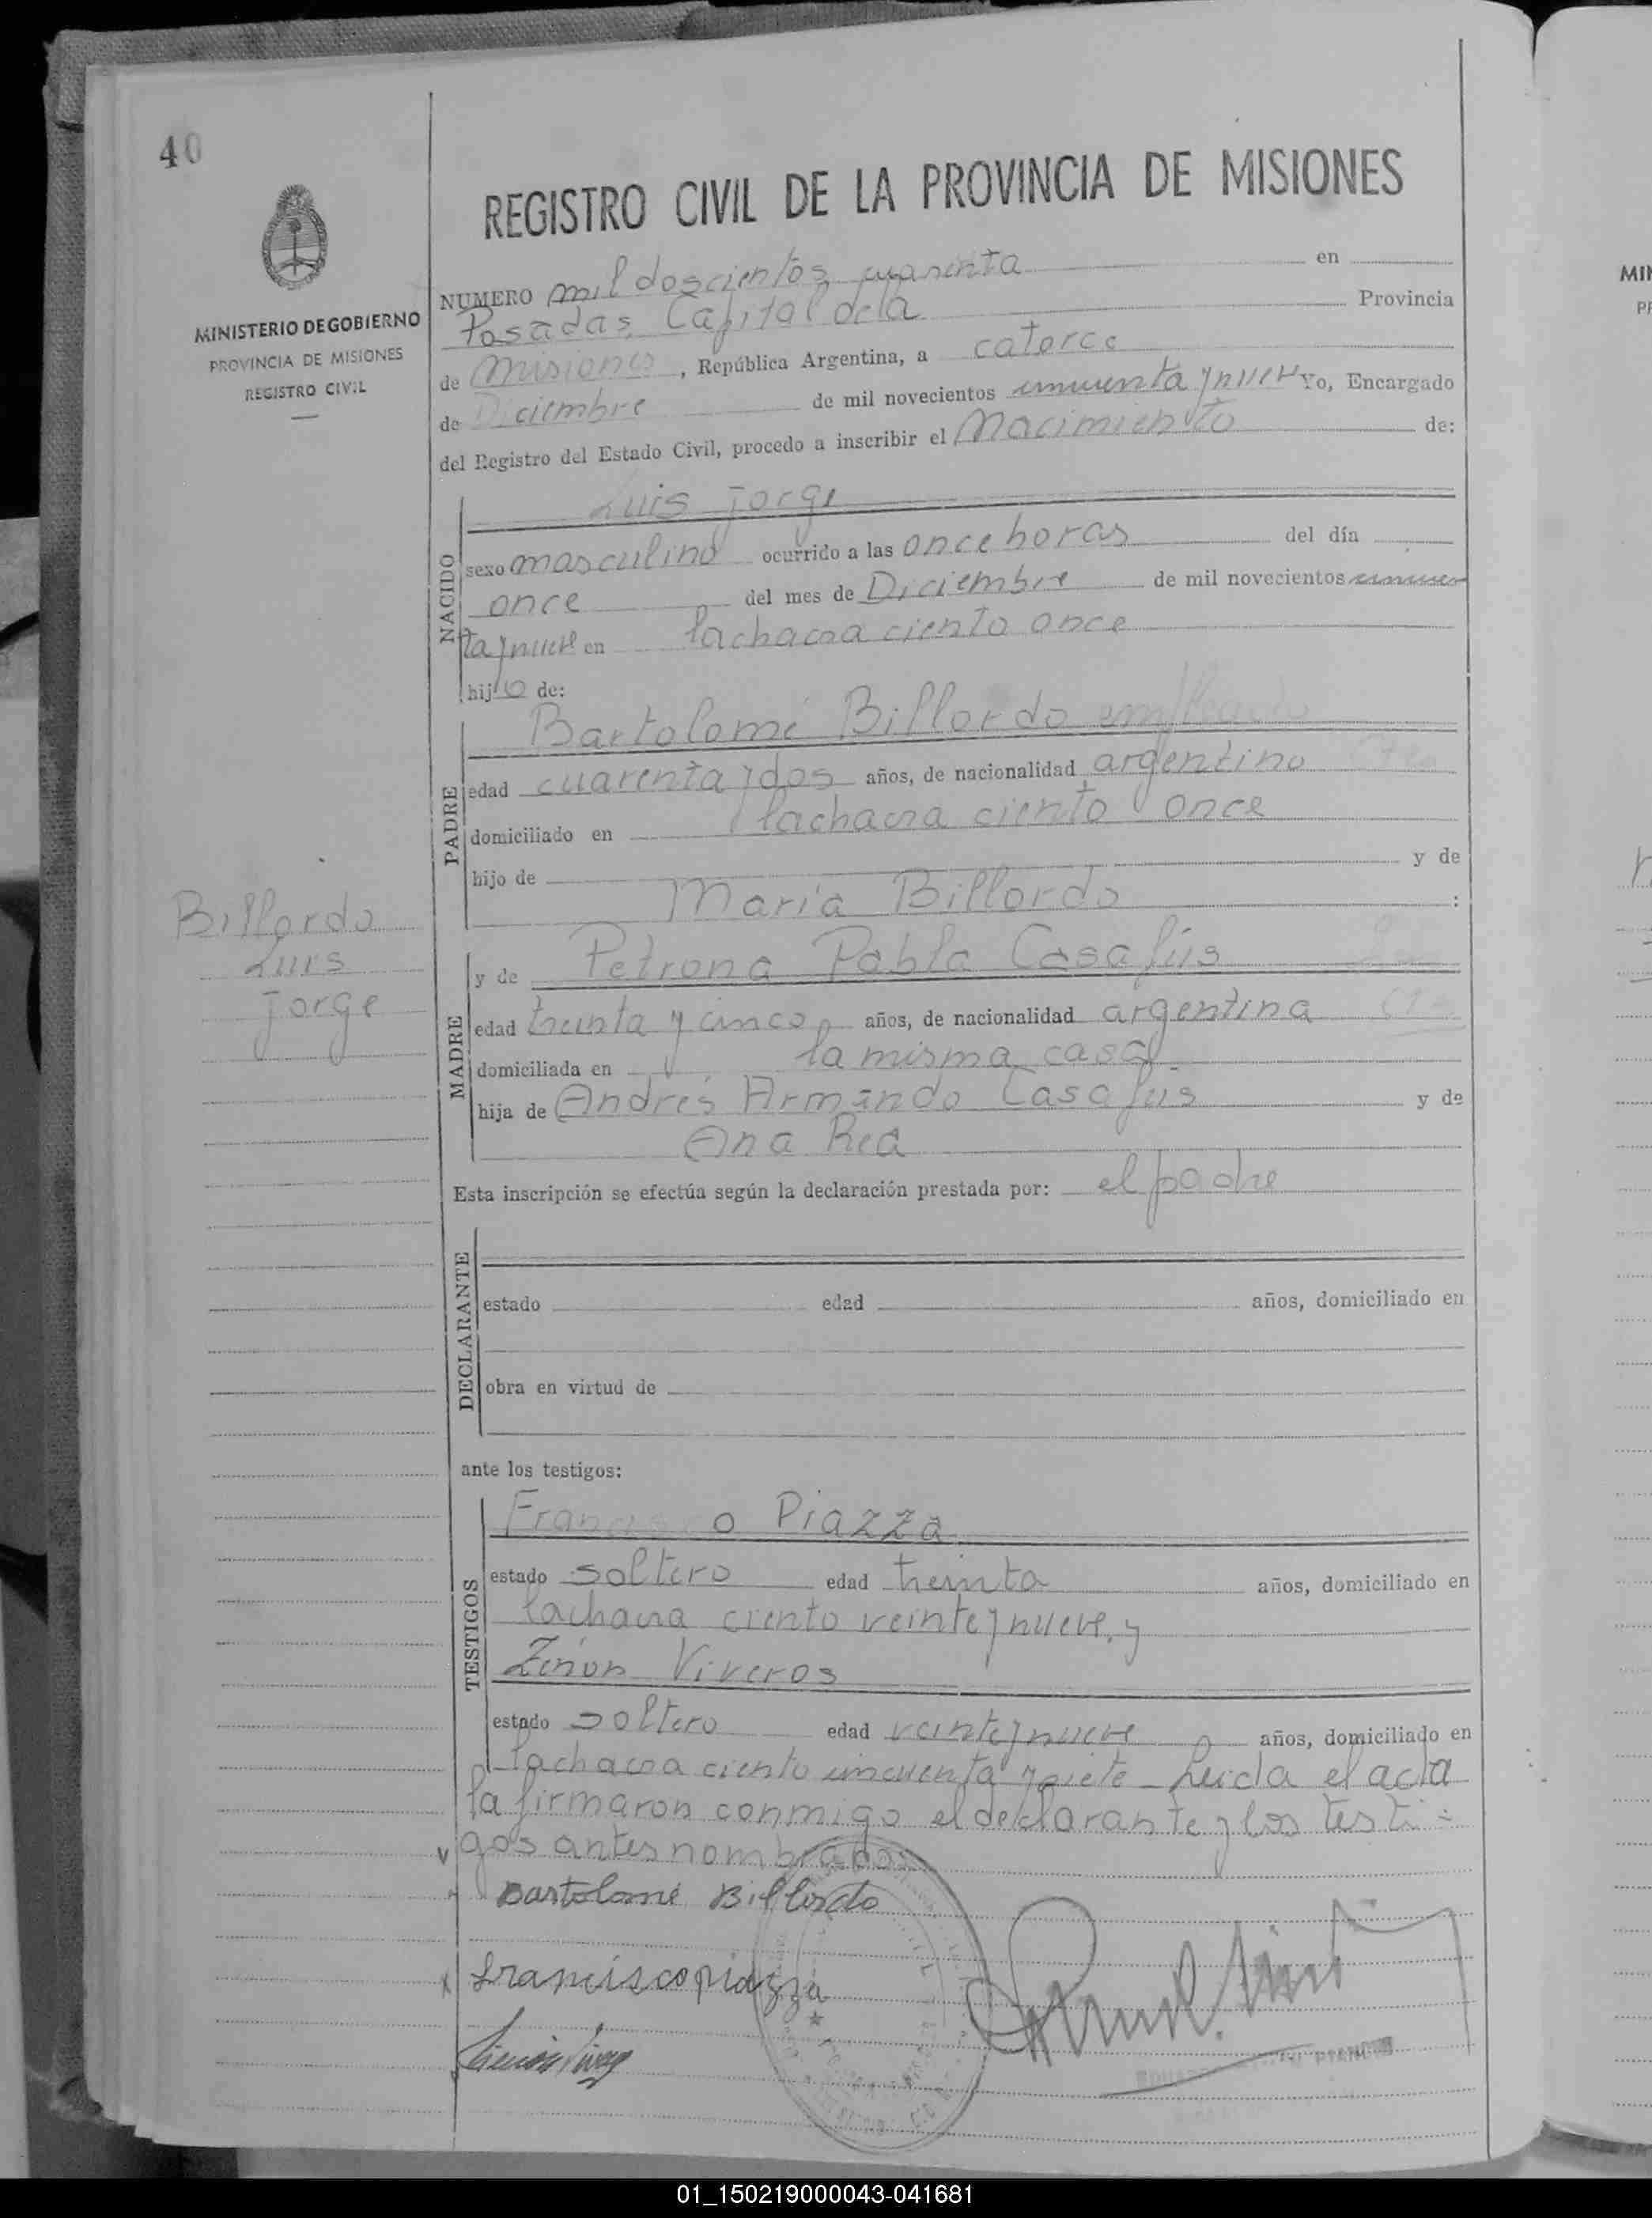 40
MINISTERIO DE GOBIERNO
PROVINCIA DE MISIONES
REGISTRO CIVIL
REGISTRO CIVIL DE LA PROVINCIA DE MISIONES
NUMERO mil doscientos cuarenta en
Posadas, Capital de la Provincia
de Misiones, República Argentina, a catorce
de Diciembre de mil novecientos cincuenta y nueve Yo, Encargado
del Registro del Estado Civil, procedo a inscribir el Nacimiento de:
NACIDO
Luis Jorge
sexo masculino ocurrido a las once horas del día
once del mes de Diciembre de mil novecientos cincuen
ta y nueve en la chacra ciento once
hijo de:
PADRE
Bartolomé Billordo empleado
edad cuarenta y dos años, de nacionalidad argentino
domiciliado en la chacra ciento once
hijo de y de
María Billordo :
Billordo
Luis
Jorge
MADRE
y de Petrona Pabla Casafús
edad treinta y cinco años, de nacionalidad argentina
domiciliada en la misma casa
hija de Andrés Armando Casafús y de
Ana Rea
Esta inscripción se efectúa según la declaración prestada por: el padre
DECLARANTE
estado edad años, domiciliado en
obra en virtud de
ante los testigos:
TESTIGOS
Francisco Piazza
estado soltero edad treinta años, domiciliado en
la chacra ciento veinte y nueve, y
Zenón Viveros
estado soltero edad veinte y nueve años, domiciliado en
la chacra ciento cincuenta y siete - Leida el acta
la firmaron conmigo el declarante y los testi=
gos antes nombrados
Bartolomé Billordo
Francisco piazza
01_150219000043-041681